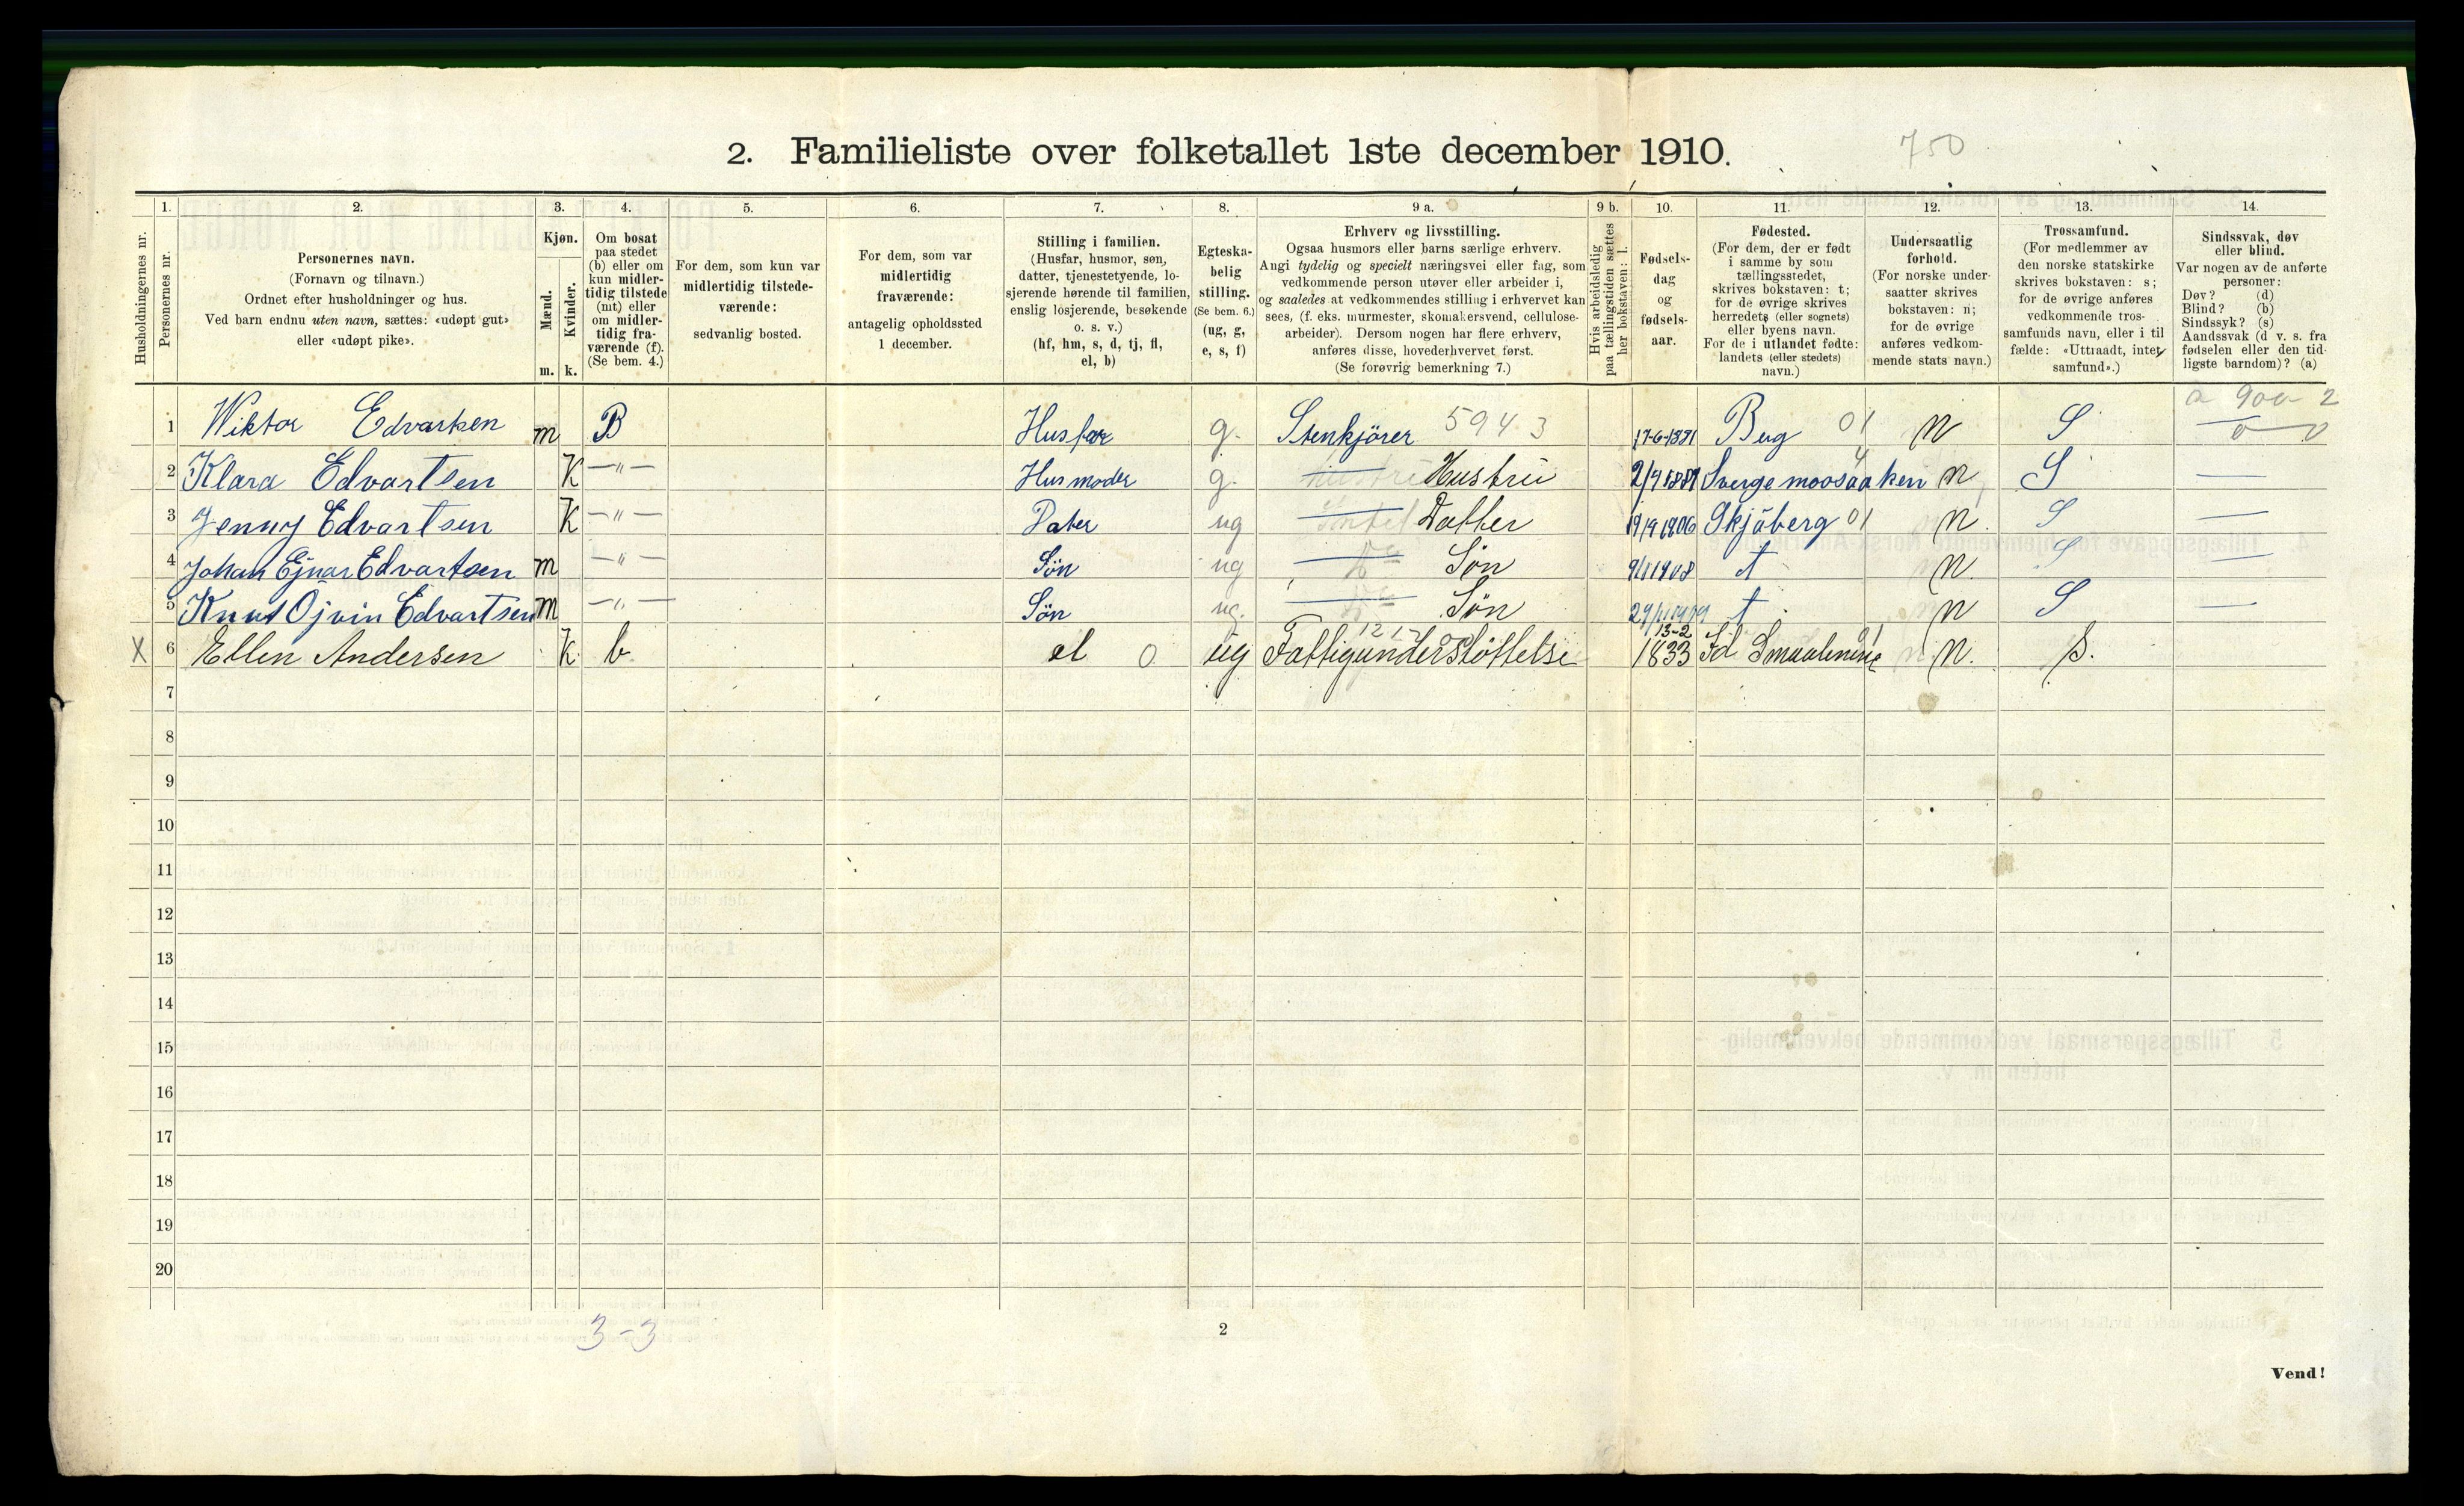 2. Familieliste over folketallet 1ste december 1910.
750
Husholdningernes nr.
1. Personernes nr.
2. Personernes navn.
(Fornavn og tilnavn.)
Ordnet efter husholdninger og hus.
Ved barn endnu uten navn, sættes: «udøpt gut»
eller «udøpt pike».
3. Kjøn.
Mænd. m.
Kvinder. k.
4. Om bosat
paa stedet
(b) eller om
kun midler-
tidig tilstede
(mt) eller
om midler-
tidig fra-
værende (f).
(Se bem. 4.)
5. For dem, som kun var
midlertidig tilstede-
værende:
sedvanlig bosted.
6. For dem, som var
midlertidig
fraværende:
antagelig opholdssted
1 december.
7. Stilling i familien.
(Husfar, husmor, søn,
datter, tjenestetyende, lo-
sjerende hørende til familien,
enslig losjerende, besøkende
o. s. v.)
(hf, hm, s, d, tj, fl,
el, b)
8. Egteska-
belig
stilling.
(Se bem. 6.)
(ug, g,
e, s, f)
9 a. Erhverv og livsstilling.
Ogsaa husmors eller barns særlige erhverv.
Angi tydelig og specielt næringsvei eller fag, som
vedkommende person utøver eller arbeider i,
og saaledes at vedkommendes stilling i erhvervet kan
sees, (f. eks. murmester, skomakersvend, cellulose-
arbeider). Dersom nogen har flere erhverv,
anføres disse, hovederhvervet først.
(Se forøvrig bemerkning 7.)
9 b. Hvis arbeidsledig
paa tællingstiden sættes
her bokstaven: l.
10. Fødsels-
dag
og
fødsels-
aar.
11. Fødested.
(For dem, der er født
i samme by som
tællingsstedet,
skrives bokstaven: t;
for de øvrige skrives
herredets (eller sognets)
eller byens navn.
For de i utlandet fødte:
landets (eller stedets)
navn.)
12. Undersaatlig
forhold.
(For norske under-
saatter skrives
bokstaven: n;
for de øvrige
anføres vedkom-
mende stats navn.)
13. Trossamfund.
(For medlemmer av
den norske statskirke
skrives bokstaven: s;
for de øvrige anføres
vedkommende tros-
samfunds navn, eller i til
fælde: «Uttraadt, intet
samfund».)
14. Sindssvak, døv
eller blind.
Var nogen av de anførte
personer:
Døv? (d)
Blind? (b)
Sindssyk? (s)
Aandssvak (d v. s. fra
fødselen eller den tid-
ligste barndom)? (a)
1 Wiktor Edvartsen m B Husfar g. Stenkjörer 5943 17-6-1881 Bug 01 n S
2 Klara Edvartsen K —"— Husmoder g. Hustru Sverge moosaaken n S —
3 Jenny Edvartsen K —"— Dater ug Datter 19/9 1906 Skjäberg 01 n. S —
4 Johan Ejnar Edvartsen m —"— Sön ug Sön t n. S —
5 Knut Ojvin Edvartsen m —"— Sön ug. Sön t n S —
X 6 Ellen Andersen K b. el 0 ug Fattigunderstöttelse 13-2 1833 Id Smaalenene n. s.
7
8
9
10
11
12
13
14
15
16
17
18
19
20
3-3
2
Vend!